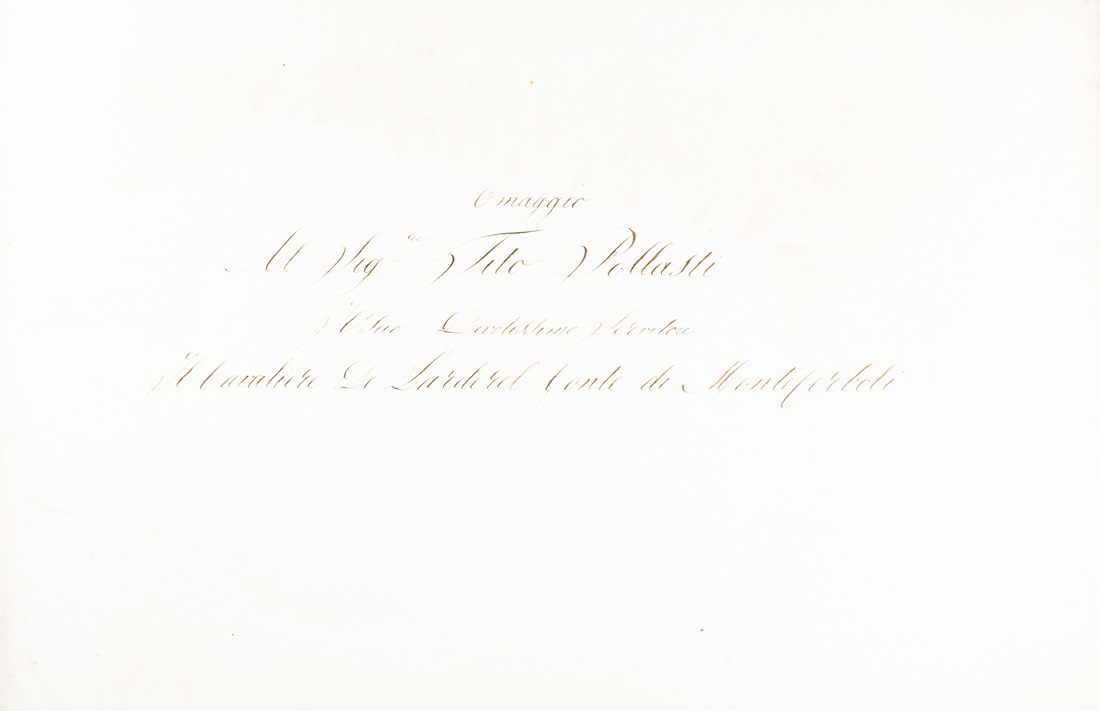 Omaggio
Al Sig.re Tito Pollasti
Il Suo Devotissimo Servitore
Il Cavaliere De Larderel Conte di Montecerboli